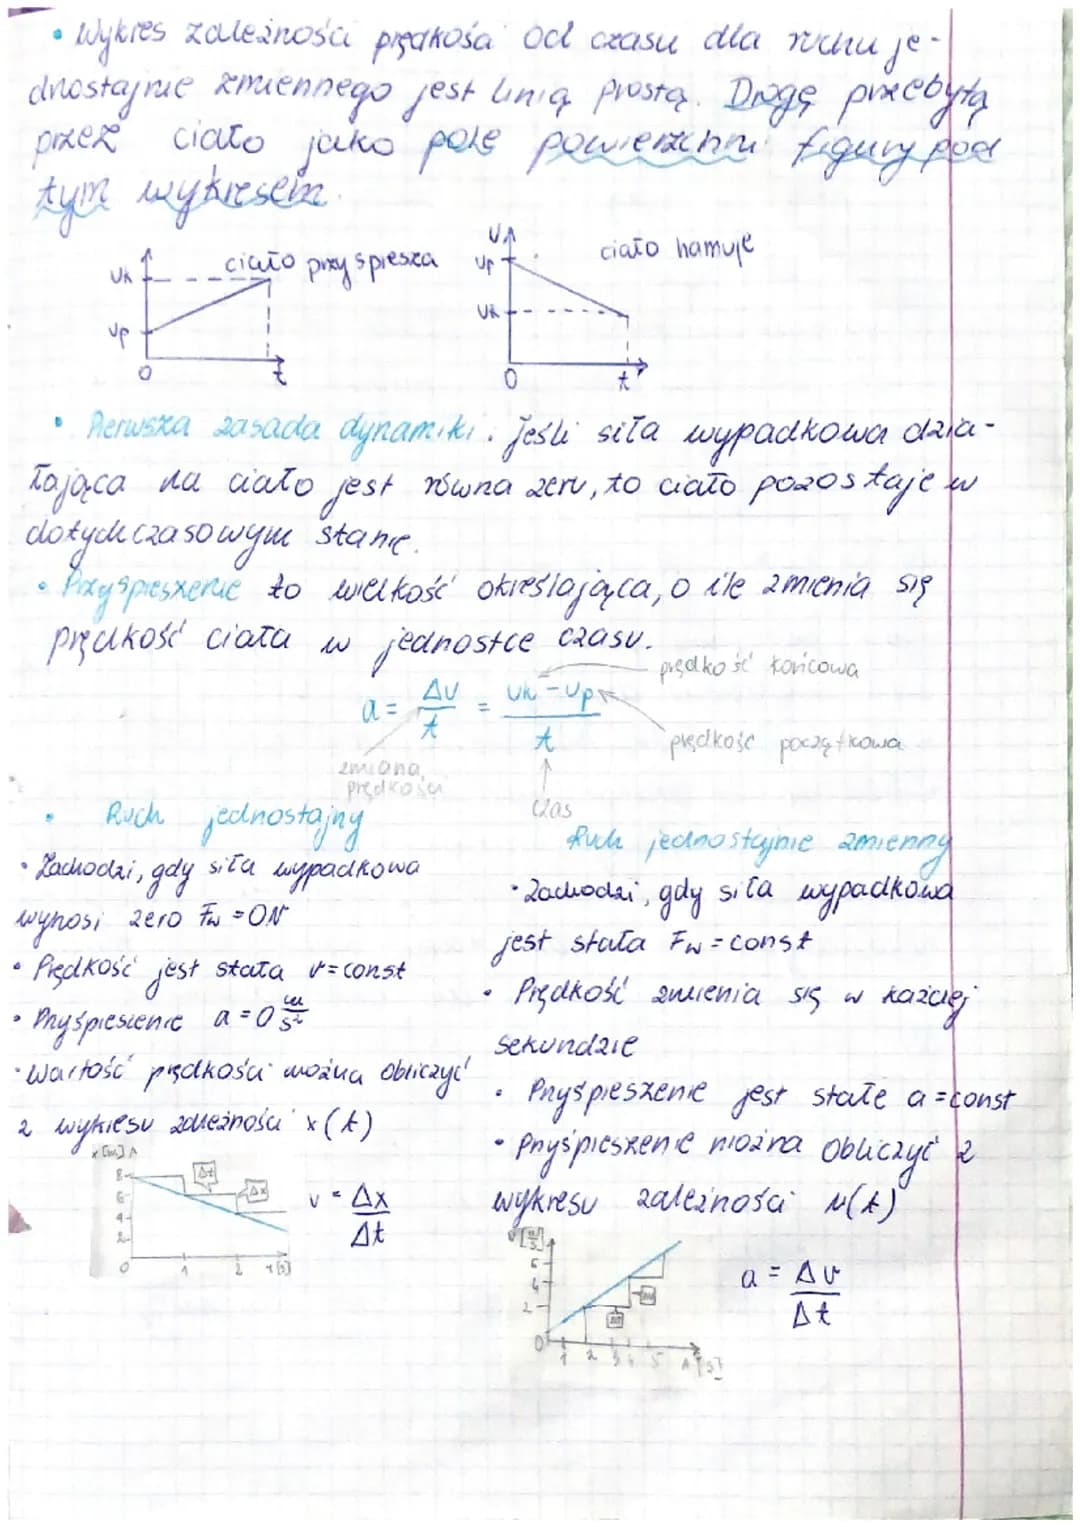 • Wykres zależności prędkości od czasu dla ruchu je-
dnostajnie zmiennego jest linią prostą. Drogę przebytą
przez ciało jako pole powierzchni figury pod
tym wykresem.
ciało przyspiesza
Vk
Vp
0
t
V
ciało hamuje
Vp
Vk
0
t
• Pierwsza zasada dynamiki. jeśli siła wypadkowa dzia-
łająca na ciało jest równa zeru, to ciało pozostaje w
dotychczasowym stanie.
• Przyspieszenie to wielkość określająca, o ile zmienia się
prędkość ciała w jednostce czasu.
prędkość końcowa
a = Δv/t = vk - vp/t
prędkość początkowa
zmiana
prędkości
czas
• Ruch jednostajny
• Zachodzi, gdy siła wypadkowa
wynosi zero Fw = 0N
• Prędkość jest stała v = const
• Przyśpieszenie a = 0 m/s²
• Wartość prędkości można obliczyć
z wykresu zależności x(t)
x [m]
8
6
4
2
0
1
2
t [s]
Δt
Δx
v = Δx/Δt
Ruch jednostajnie zmienny
• Zachodzi, gdy siła wypadkowa
jest stała Fw = const
• Prędkość zmienia się w każdej
sekundzie
• Przyśpieszenie jest stałe a = const
• Przyśpieszenie można obliczyć z
wykresu zależności v(t)
v [m/s]
6
4
2
0
1 2 3 4 5
a = Δv/Δt